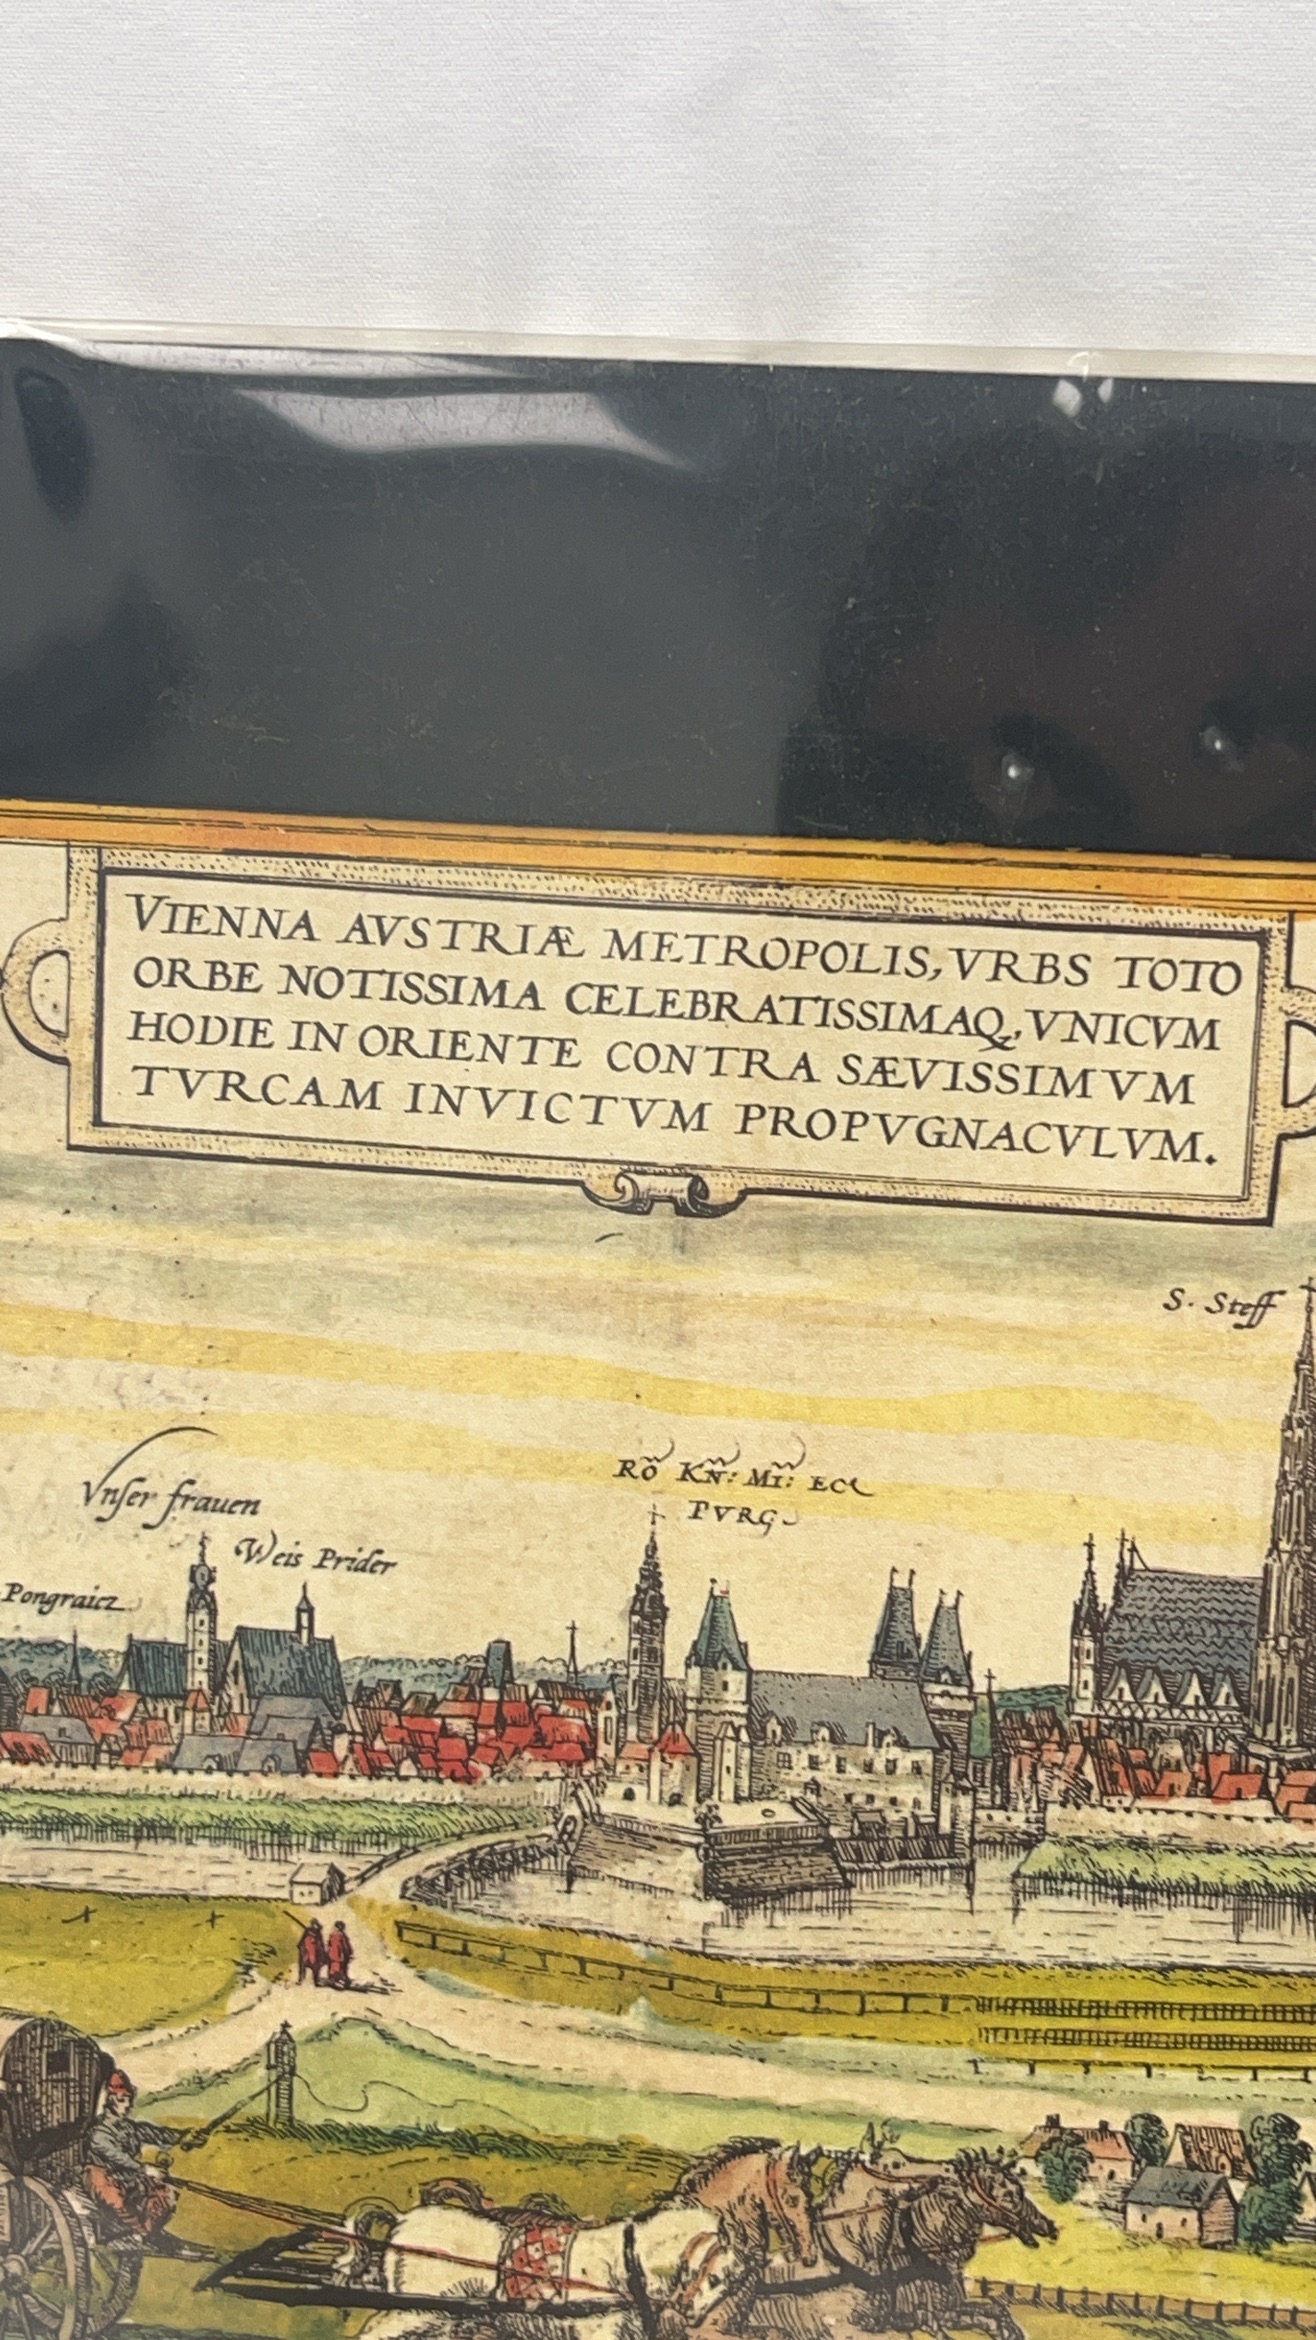 VIENNA AVSTRIÆ METROPOLIS, VRBS TOTO
ORBE NOTISSIMA CELEBRATISSIMAQ, VNICVM
HODIE IN ORIENTE CONTRA SÆVISSIMVM
TVRCAM INVICTVM PROPVGNACVLVM.
S. Steff
Vnſer frauen
Weis Prider
Pongraicz
RÕ KÑ: MI: EC
PVRG